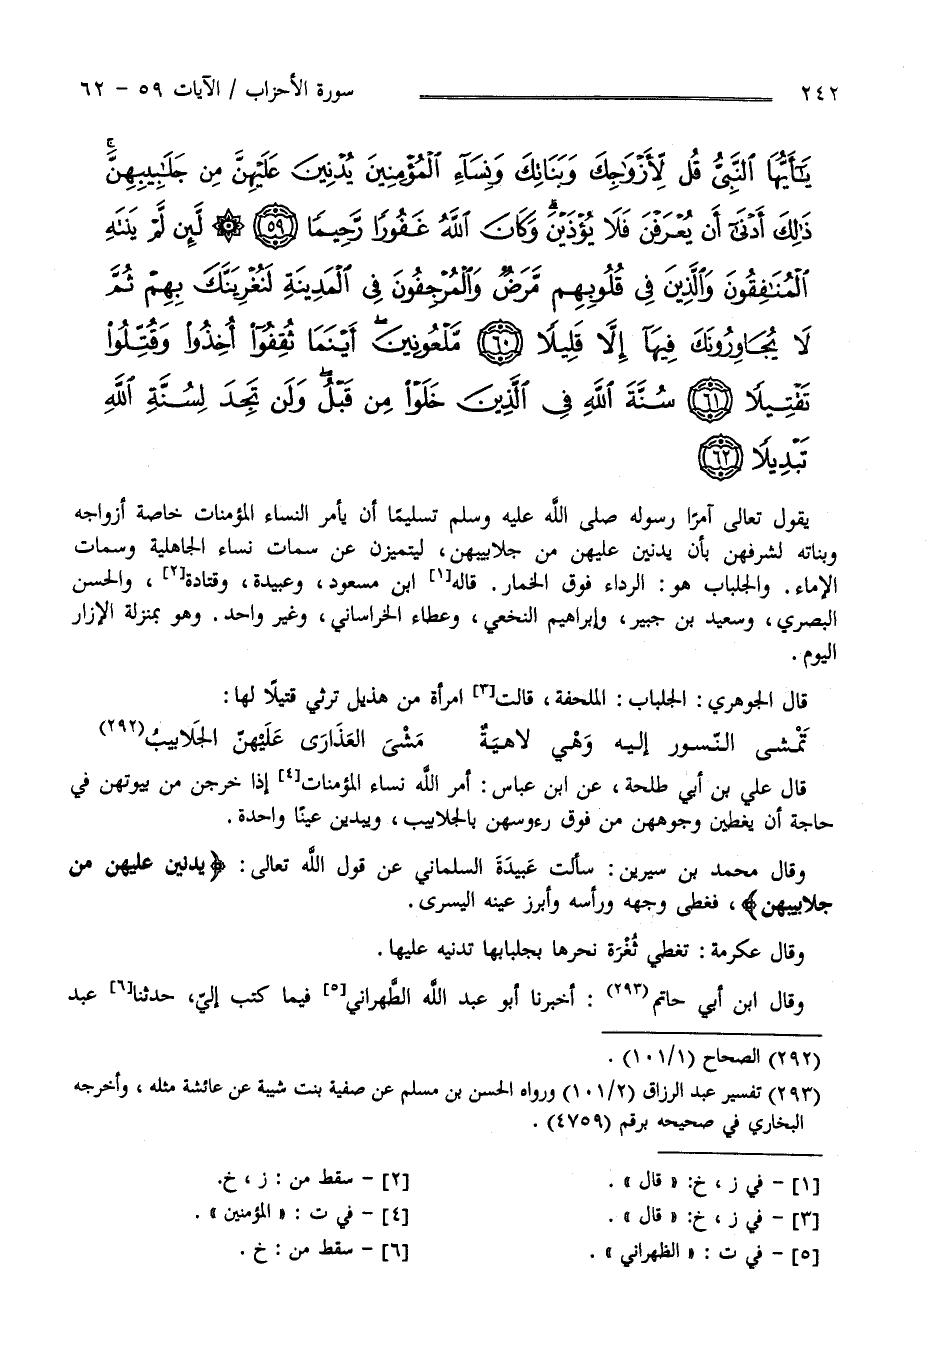 ٢٤٢ سورة الأحزاب / الآيات ٥٩ - ٦٢
يَٰٓأَيُّهَا ٱلنَّبِىُّ قُل لِّأَزْوَٰجِكَ وَبَنَاتِكَ وَنِسَآءِ ٱلْمُؤْمِنِينَ يُدْنِينَ عَلَيْهِنَّ مِن جَلَٰبِيبِهِنَّ ۚ
ذَٰلِكَ أَدْنَىٰٓ أَن يُعْرَفْنَ فَلَا يُؤْذَيْنَ ۗ وَكَانَ ٱللَّهُ غَفُورًا رَّحِيمًا ٥٩ ۞ لَّئِن لَّمْ يَنتَهِ
ٱلْمُنَٰفِقُونَ وَٱلَّذِينَ فِى قُلُوبِهِم مَّرَضٌ وَٱلْمُرْجِفُونَ فِى ٱلْمَدِينَةِ لَنُغْرِيَنَّكَ بِهِمْ ثُمَّ
لَا يُجَاوِرُونَكَ فِيهَآ إِلَّا قَلِيلًا ٦٠ مَّلْعُونِينَ ۖ أَيْنَمَا ثُقِفُوٓا۟ أُخِذُوا۟ وَقُتِّلُوا۟
تَقْتِيلًا ٦١ سُنَّةَ ٱللَّهِ فِى ٱلَّذِينَ خَلَوْا۟ مِن قَبْلُ ۖ وَلَن تَجِدَ لِسُنَّةِ ٱللَّهِ
تَبْدِيلًا ٦٢
يقول تعالى آمرًا رسوله صلى اللَّه عليه وسلم تسليمًا أن يأمر النساء المؤمنات خاصة أزواجه
وبناته لشرفهن بأن يدنين عليهن من جلابيبهن، ليتميزن عن سمات نساء الجاهلية وسمات
الإماء. والجلباب هو: الرداء فوق الخمار. قاله[١] ابن مسعود، وعبيدة، وقتادة[٢]، والحسن
البصري، وسعيد بن جبير، وإبراهيم النخعي، وعطاء الخراساني، وغير واحد. وهو بمنزلة الإزار
اليوم.
قال الجوهري: الجلباب: الملحفة، قالت[٣] امرأة من هذيل ترثي قتيلًا لها:
تَمْشى النّسور إليه وَهْي لاهيَةٌ مَشْىَ العَذَارَى عَلَيْهنّ الجَلابيبُ(٢٩٢)
قال علي بن أبي طلحة، عن ابن عباس: أمر اللَّه نساء المؤمنات[٤] إذا خرجن من بيوتهن في
حاجة أن يغطين وجوههن من فوق رءوسهن بالجلابيب، ويبدين عينًا واحدة.
وقال محمد بن سيرين: سألت عَبيدَةَ السلماني عن قول اللَّه تعالى: ﴿يدنين عليهن من
جلابيبهن﴾، فغطى وجهه ورأسه وأبرز عينه اليسرى.
وقال عكرمة: تغطي ثُغْرَة نحرها بجلبابها تدنيه عليها.
وقال ابن أبي حاتم(٢٩٣): أخبرنا أبو عبد اللَّه الطَّهراني[٥] فيما كتب إليّ، حدثنا[٦] عبد
(٢٩٢) الصحاح (١٠١/١).
(٢٩٣) تفسير عبد الرزاق (١٠١/٢) ورواه الحسن بن مسلم عن صفية بنت شيبة عن عائشة مثله، وأخرجه
البخاري في صحيحه برقم (٤٧٥٩).
[١] - في ز، خ: « قال ». [٢] - سقط من: ز، خ.
[٣] - في ز، خ: « قال ». [٤] - في ت: « المؤمنين ».
[٥] - في ت: « الظهراني ». [٦] - سقط من: خ.